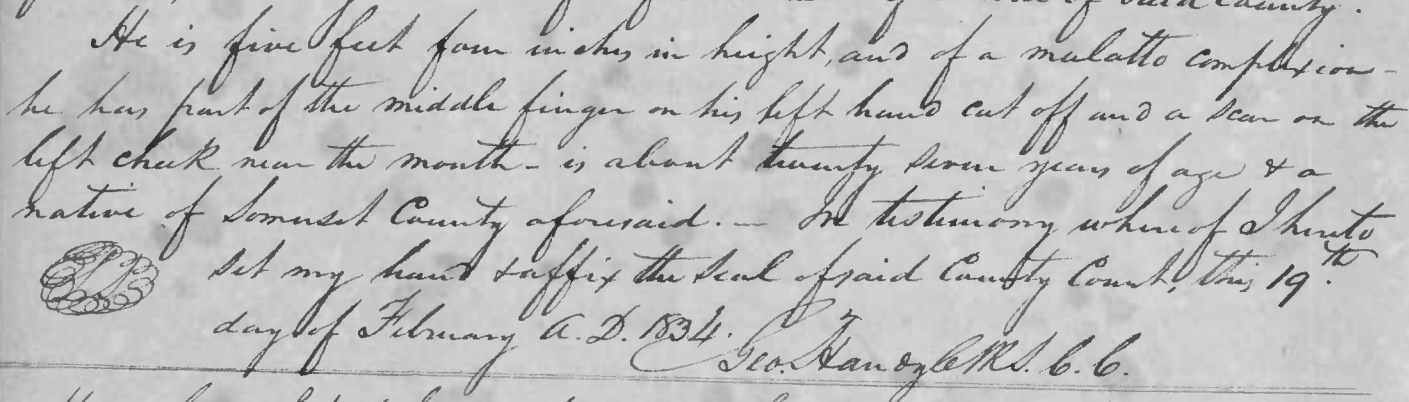 of said County.
He is five feet four inches in height, and of a mulatto complexion -
he has part of the middle finger on his left hand cut off and a scar on the
left cheek near the mouth - is about twenty seven years of age & a
native of Somerset County aforesaid. — In testimony whereof I hereto
set my hand & affix the seal of said County Court, this 19th.
day of February A. D. 1834.
Geo. Handy Clk S. C. C.